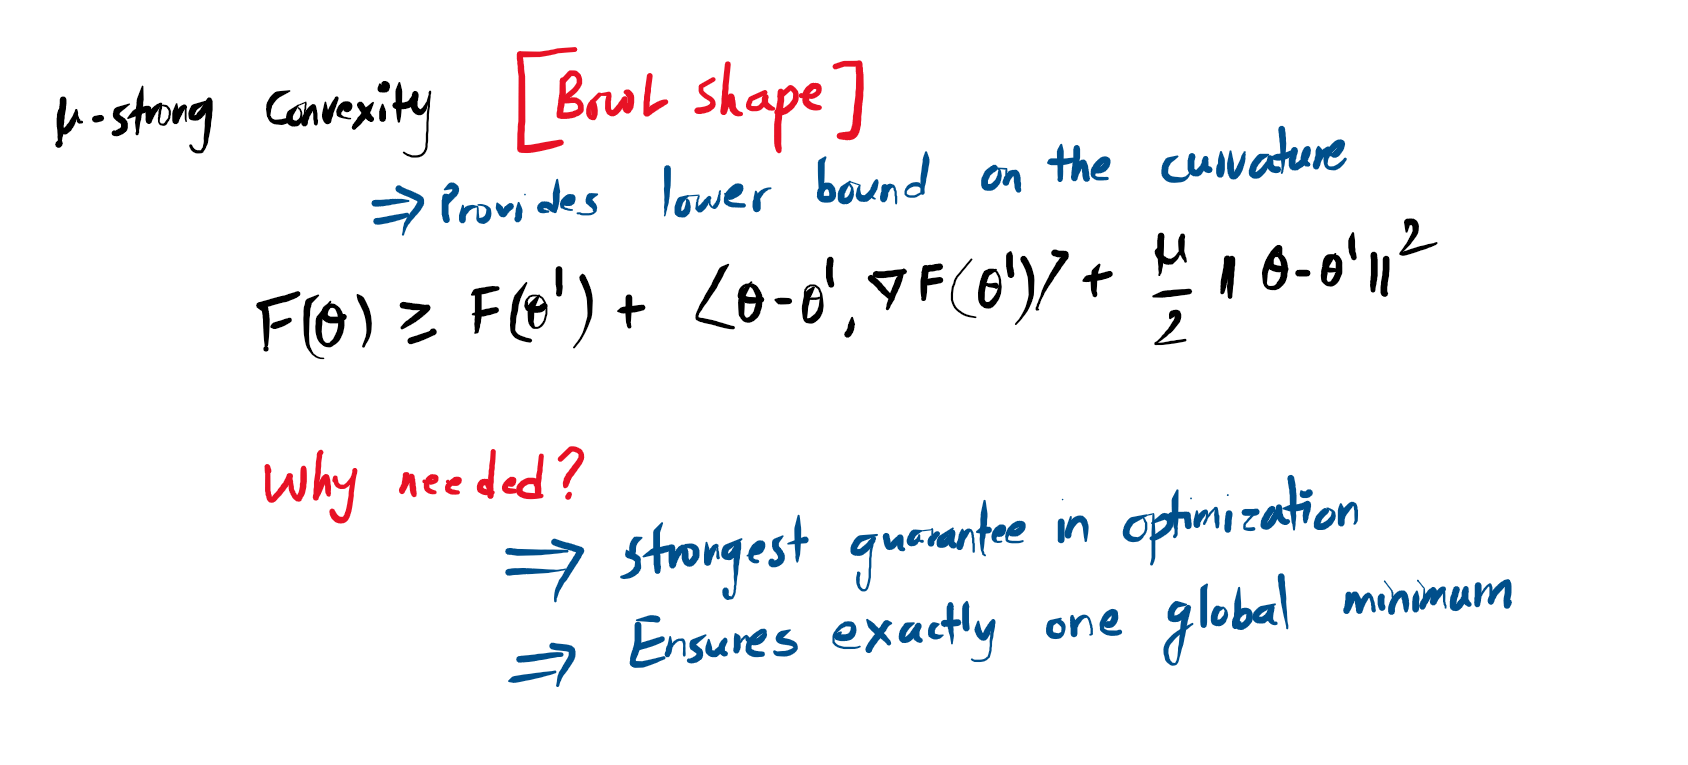 μ-strong Convexity [Bowl shape]
⇒ Provides lower bound on the curvature
F(θ) ≥ F(θ') + ⟨θ-θ', ∇F(θ')⟩ + μ/2 ‖θ-θ'‖²
Why needed?
⇒ strongest guarantee in optimization
⇒ Ensures exactly one global minimum